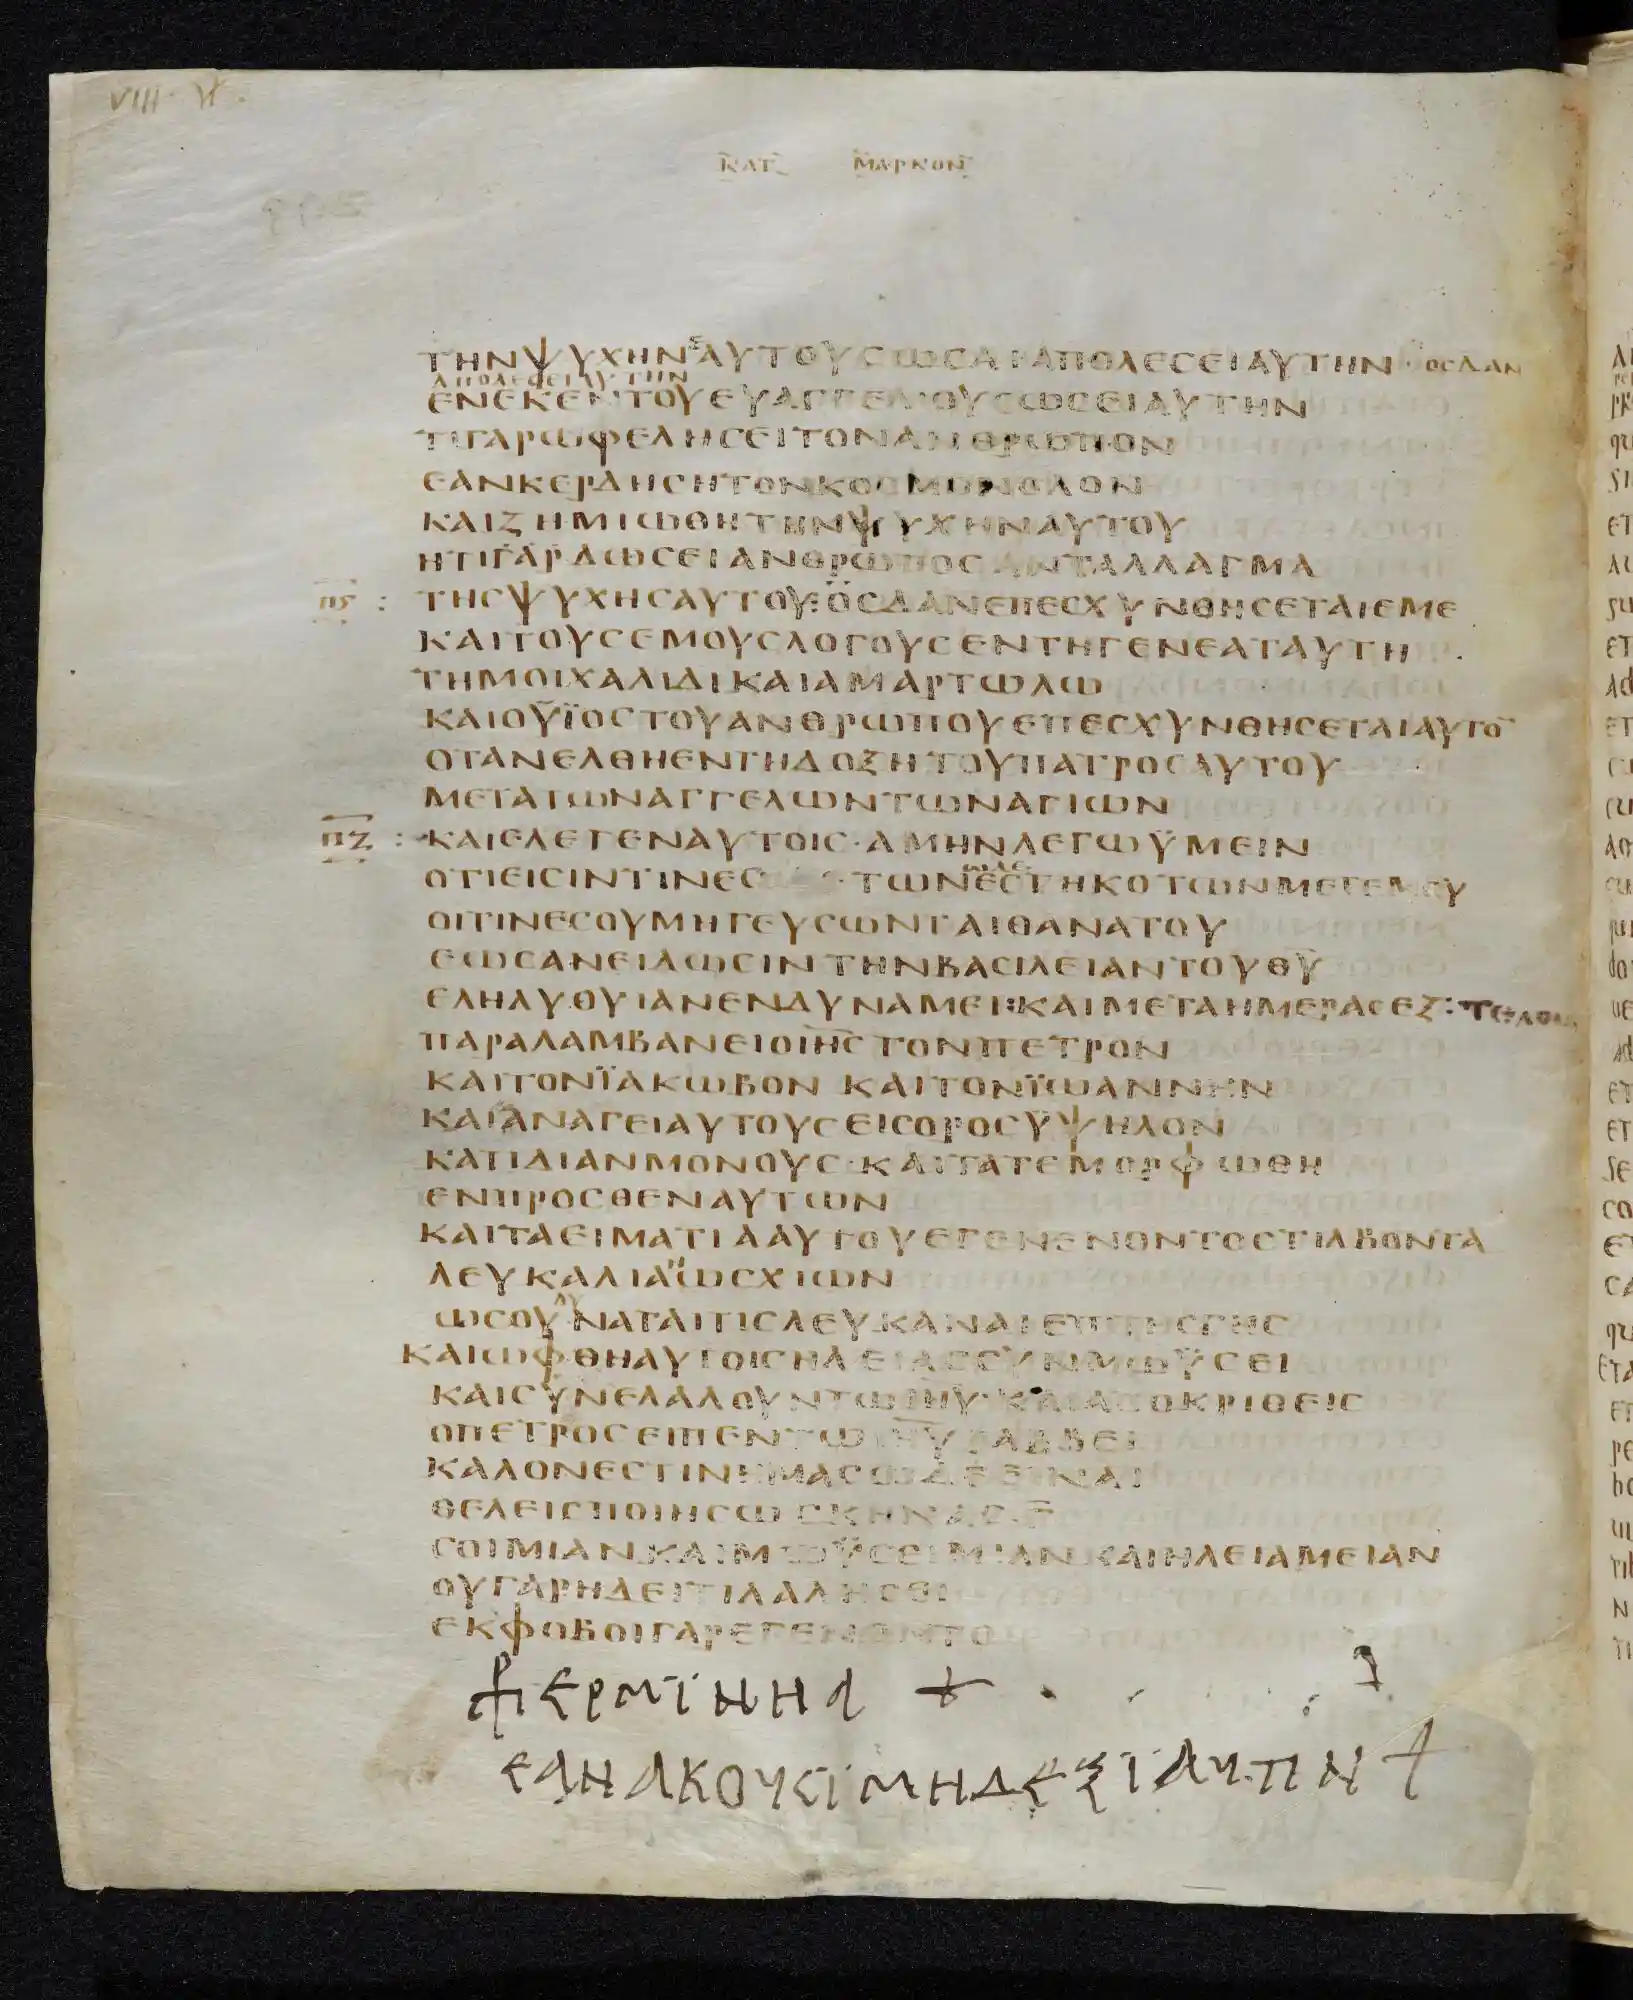 VIII
ΚΑΤ ΜΑΡΚΟΝ
ΤΗΝΨΥΧΗΝΕΑΥΤΟΥϹΩϹΑΙΑΠΟΛΕϹΕΙΑΥΤΗΝ · ΟϹΔΑΝ
ΑΠΟΛΕϹΕΙΑΥΤΗΝ
ΕΝΕΚΕΝΤΟΥΕΥΑΓΓΕΛΙΟΥϹΩϹΕΙΑΥΤΗΝ
ΤΙΓΑΡΩΦΕΛΗϹΕΙΤΟΝΑΝΘΡΩΠΟΝ
ΕΑΝΚΕΡΔΗϹΗΤΟΝΚΟϹΜΟΝΟΛΟΝ
ΚΑΙΖΗΜΙΩΘΗΤΗΝΨΥΧΗΝΑΥΤΟΥ
ΗΤΙΓΑΡΔΩϹΕΙΑΝΘΡΩΠΟϹΑΝΤΑΛΛΑΓΜΑ
Π̅Ϛ̅ : ΤΗϹΨΥΧΗϹΑΥΤΟΥ:ΟϹΔΑΝΕΠΕϹΧΥΝΘΗϹΕΤΑΙΕΜΕ
ΚΑΙΤΟΥϹΕΜΟΥϹΛΟΓΟΥϹΕΝΤΗΓΕΝΕΑΤΑΥΤΗ
ΤΗΜΟΙΧΑΛΙΔΙΚΑΙΑΜΑΡΤΩΛΩ
ΚΑΙΟΥΪΟϹΤΟΥΑΝΘΡΩΠΟΥΕΠΕϹΧΥΝΘΗϹΕΤΑΙΑΥΤΟ̅
ΟΤΑΝΕΛΘΗΕΝΤΗΔΟΞΗΤΟΥΠΑΤΡΟϹΑΥΤΟΥ
ΜΕΤΑΤΩΝΑΓΓΕΛΩΝΤΩΝΑΓΙΩΝ
Π̅Ζ̅ : ΚΑΙΕΛΕΓΕΝΑΥΤΟΙϹ·ΑΜΗΝΛΕΓΩΫΜΕΙΝ
ΩΔΕ
ΟΤΙΕΙϹΙΝΤΙΝΕϹ ·ΤΩΝΕϹΤΗΚΟΤΩΝΜΕΤΕΜΟΥ
ΟΙΤΙΝΕϹΟΥΜΗΓΕΥϹΩΝΤΑΙΘΑΝΑΤΟΥ
ΕΩϹΑΝΕΙΔΩϹΙΝΤΗΝΒΑϹΙΛΕΙΑΝΤΟΥΘ̅Υ̅
ΕΛΗΛΥΘΥΙΑΝΕΝΔΥΝΑΜΕΙ:ΚΑΙΜΕΤΑΗΜΕΡΑϹΕΞ:
ΠΑΡΑΛΑΜΒΑΝΕΙΟΙ̅Η̅Ϲ̅ΤΟΝΠΕΤΡΟΝ
ΚΑΙΤΟΝΪΑΚΩΒΟΝ ΚΑΙΤΟΝΪΩΑΝΝΗΝ
ΚΑΙΑΝΑΓΕΙΑΥΤΟΥϹΕΙϹΟΡΟϹΫΨΗΛΟΝ
ΚΑΤΙΔΙΑΝΜΟΝΟΥϹ·ΚΑΙΤΑΤΕΜΟΡΦΩΘΗ
ΕΝΠΡΟϹΘΕΝΑΥΤΩΝ
ΚΑΙΤΑΕΙΜΑΤΙΑΑΥΤΟΥΕΓΕΝΕΝΟΝΤΟϹΤΙΛΒΟΝΤΑ
ΛΕΥΚΑΛΙΑΝΩϹΧΙΩΝ
ΩϹΟΥΔΥΝΑΤΑΙΤΙϹΛΕΥΚΑΝΑΙΕΠΙΤΗϹΓΗϹ
ΚΑΙΩΦΘΗΑΥΤΟΙϹΗΛΕΙΑϹϹΥΝΜΩΫϹΕΙ
ΚΑΙϹΥΝΕΛΑΛΟΥΝΤΩΙ̅Η̅Υ̅·ΚΑΙΑΠΟΚΡΙΘΕΙϹ
ΟΠΕΤΡΟϹΕΙΠΕΝΤΩΙ̅Η̅Υ̅ΡΑΒΒΕΙ
ΚΑΛΟΝΕϹΤΙΝΗΜΑϹΩΔΕΕΙΝΑΙ
ΘΕΛΕΙϹΠΟΙΗϹΩϹΚΗΝΑϹ·Γ̅
ϹΟΙΜΙΑΝΚΑΙΜΩΫϹΕΙΜΙΑΝΚΑΙΗΛΕΙΑΜΕΙΑΝ
ΟΥΓΑΡΗΔΕΙΤΙΛΑΛΗϹΕΙ
ΕΚΦΟΒΟΙΓΑΡΕΓΕΝΟΝΤΟ
ΕΡΜΪΝΗΑ ✝
ΕΑΝΑΚΟΥϹΪΜΗΔΕΞΪΑΥΤΙΝ ✝